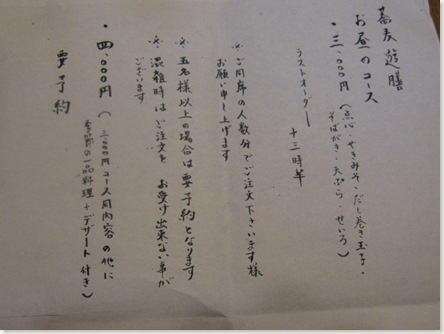 蕎麦遊膳
お昼のコース
・三、〇〇〇円（点心・やきみそ・だし巻き玉子・
そばがき・天ぷら・せいろ）
ラストオーダー 十三時半
※ご同席の人数分でご注文下さいます様
お願い申し上げます
※五名様以上の場合は要予約となります
※混雑時はご注文をお受け出来ない事が
ございます
・四、〇〇〇円（三、〇〇〇円コース同内容の他に
季節の一品料理＋デザート付き）
要予約